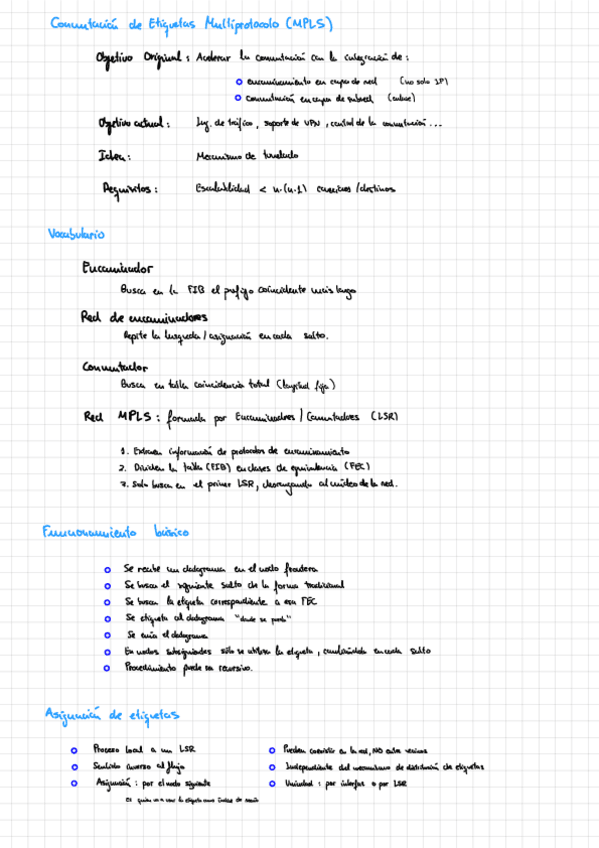 Conmutación de Etiquetas Multiprotocolo (MPLS)
Objetivo Original: Acelerar la conmutación con la integración de:
encaminamiento en capa de red (no solo IP)
conmutación en capa de subred (enlace)
Objetivo actual: Ing. de tráfico, soporte de VPN, control de la conmutación...
Idea: Mecanismo de tunelado
Requisitos: Escalabilidad < n·(n-1) caminos/destinos
Vocabulario
Encaminador
Busca en la FIB el prefijo coincidente más largo
Red de encaminadores
Repite la búsqueda/asignación en cada salto.
Conmutador
Busca en tabla coincidencia total (longitud fija)
Red MPLS: formada por Encaminadores/Conmutadores (LSR)
1. Extraen información de protocolos de encaminamiento
2. Dividen la tabla (FIB) en clases de equivalencia (FEC)
3. Solo busca en el primer LSR, descargando al núcleo de la red.
Funcionamiento básico
Se recibe un datagrama en el nodo frontera
Se busca el siguiente salto de la forma tradicional
Se busca la etiqueta correspondiente a esa FEC
Se etiqueta al datagrama "donde se pueda"
Se envía el datagrama
En nodos subsiguientes sólo se utiliza la etiqueta, cambiándola en cada salto
Procedimiento puede ser recursivo.
Asignación de etiquetas
Proceso local a un LSR
Sentido inverso al flujo
Asignación: por el nodo siguiente
Es quien va a usar la etiqueta como índice de
Pueden coexistir en la red, NO entre vecinos
Independiente del mecanismo de distribución de etiquetas
Unicidad: por interfaz o por LSR